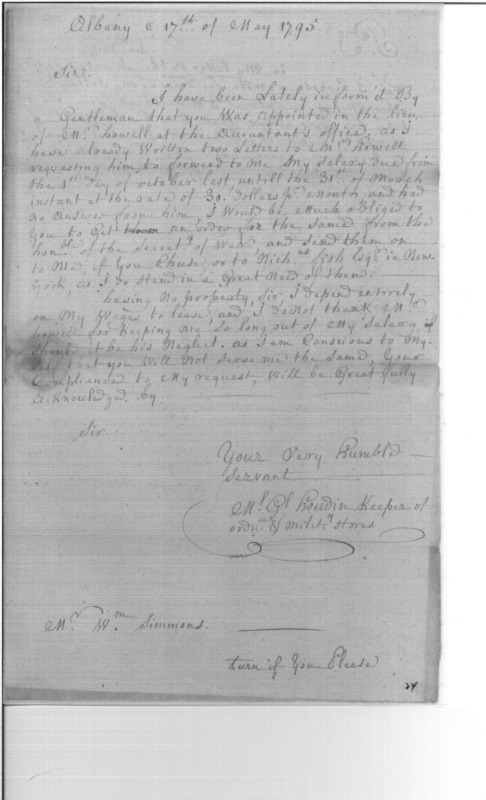 Albany e 17th of May 1795
Sir.
I have been Lately inform'd By
a Gentleman that you Was appointed in the lieu
of Mr howell at the accountant's office. as I
have already Written two Letters to Mr howell
requesting him to forward to Me My Salary due from
the 1st Day of october last untill the 31st of March
instant at the rate of 30. dollars pr Month and had
no answer from him I Would be Much obliged to
you to Get an order for the Same from the
honble of the Secrety of War and Send them on
to Me, if You Chuse or to Nichas fish Esqr in New
york as I do Stand in a Great Need of them.
having No porperty, Sir, I depend entirely
on My Wages to leave, and I do not thank Mr
howell for Keeping me So long out of My Salary if
Should it be his Neglect. as I am Conscious to My-
Self that you Will Not Serve me the Same, Your
Compliance to My request, Will be Great fully
acknowledged by.
Sir
Your Very humble
Servant
Ml Gl houdin Keeper of
ordnce & Mility Stores
Mr Wm Simmons.
turn if You Please
24